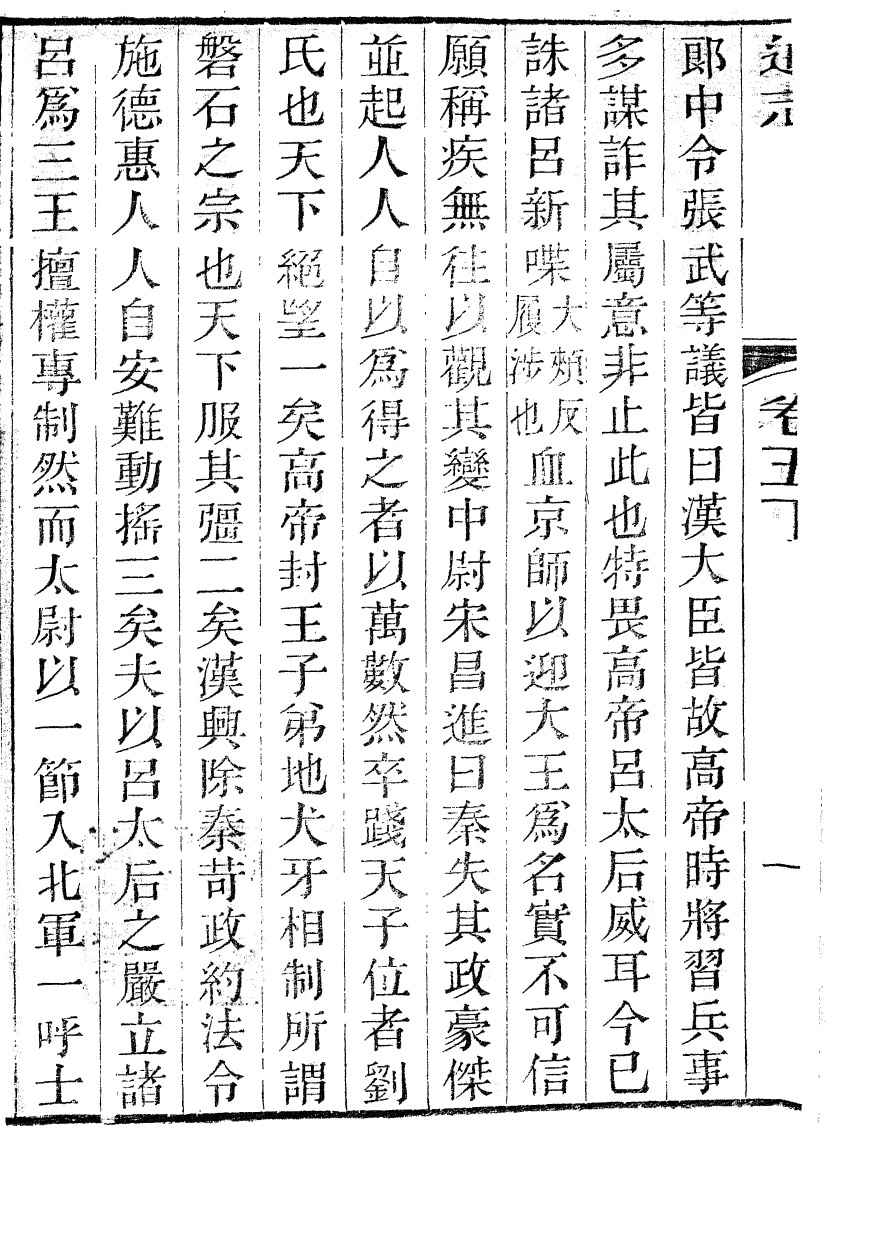 通志
卷五下
一
郞中令張武等議皆曰漢大臣皆故高帝時將習兵事
多謀詐其屬意非止此也特畏高帝呂太后威耳今已
誅諸呂新喋大頰反履涉也血京師以迎大王爲名實不可信
願稱疾無往以觀其變中尉宋昌進曰秦失其政豪傑
並起人人自以爲得之者以萬數然卒踐天子位者劉
氏也天下絕望一矣高帝封王子弟地犬牙相制所謂
磐石之宗也天下服其彊二矣漢興除秦苛政約法令
施德惠人人自安難動搖三矣夫以呂太后之嚴立諸
呂爲三王擅權專制然而太尉以一節入北軍一呼士